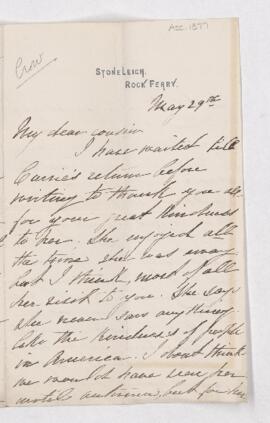 Acc. 1877
Crow
STONELEIGH,
ROCK FERRY.
May 29th
My dear cousin
I have waited till
Carrie's return before
writing to thank you all
for your great kindness
to her. She enjoyed all
the time she was away
but I think, most of all
her visit to you. She says
she never saw anything
like the kindness of people
in America. I dont think
we would have seen her
until autumn, but for her